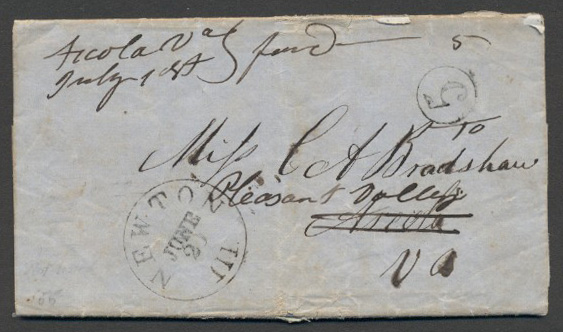 Arcola Va } forwd — 5
July 1st
5
To
Miss C A Bradshaw
Pleasant Valley
Arcola
Va
NEWTON
JUNE
Ill